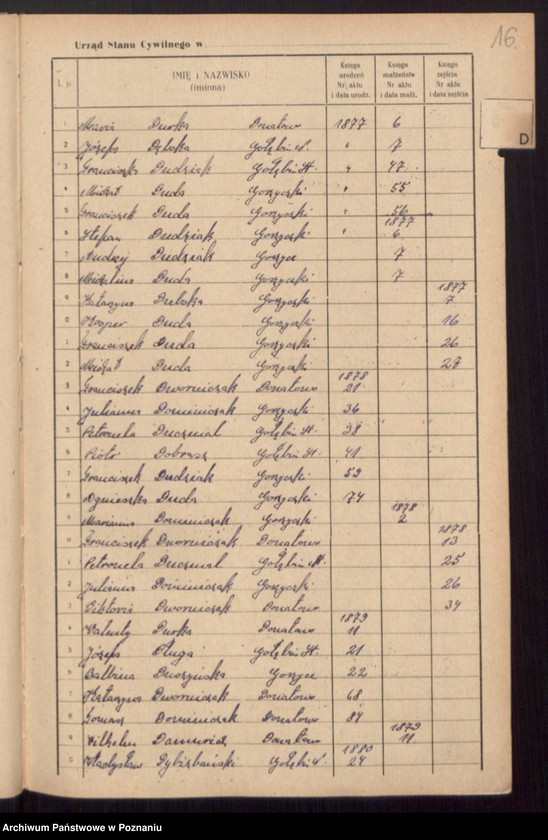 16
Urząd Stanu Cywilnego w
L. p. IMIĘ i NAZWISKO (imiona) Księga urodzeń Nr. aktu i data urodz. Księga małżeństw Nr aktu i data małż. Księga zejścia Nr aktu i data zejścia
D
1 Maria Durka Donatowo 1877 6
2 Józefa Dębska Gołębin N. " 7
3 Franciszka Dudziak Gołębin St. " 47
4 Michał Duda Gorzyczki " 55
5 Franciszek Duda Gorzyczki " 56
1877
6 Stefan Dudziak Gorzyczki " 6
7 Andrzej Dudziak Gorzyce 7
8 Duda Gorzyczki 7
1877
9 Katarzyna Gorzyczki 7
0 Kasper Duda Gorzyczki 16
1 Franciszek Duda Gorzyczki 26
2 Michał Duda Gorzyczki 28
1878
3 Franciszek Dworniczak Donatowo 21
4 Julianna Dominiczak Gorzyczki 36
5 Petronela Gołębin St. 38
6 Piotr Gołębin St. 41
7 Franciszek Dudziak Gorzyczki 59
8 Agnieszka Duda Gorzyczki 74
1878
9 Marianna Dominiczak Gorzyczki 2
1878
0 Franciszek Dworniczak Donatowo 13
1 Petronela Gołębin St. 25
2 Julianna Dominiczak Gorzyczki 26
3 Wiktoria Dworniczak Donatowo 34
1879
4 Walenty Durka Donatowo 11
5 Józefa Długa Gołębin St. 21
6 Balbina Duszyńska Gorzyce 22
7 Katarzyna Dworniczak Donatowo 68
8 Dominiczak Donatowo 84
1879
9 Wilhelm Donatowo 11
1880
0 Władysław Gołębin N. 24
Archiwum Państwowe w Poznaniu